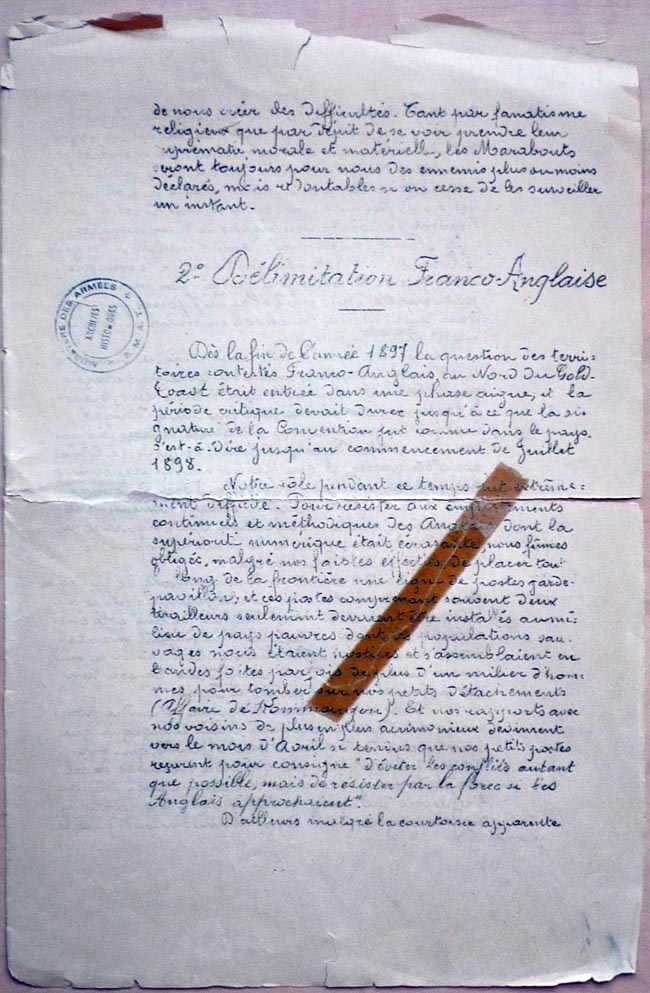 de nous créer des difficultés. Tant par fanatisme
religieux que par dépit de se voir prendre leur
suprématie morale et matérielle, les Marabouts
seront toujours pour nous des ennemis plus ou moins
déclarés, mais redoutables si on cesse de les surveiller
un instant.
2° Délimitation Franco-Anglaise
MINISTERE DES ARMÉES
ARCHIVES
HISTORIQUES
Dès la fin de l'année 1897 la question des terri-
toires contestés Franco-Anglais au Nord du Gold-
Coast était entrée dans une phase aigue, et la
période critique devait durer jusqu'à ce que la si-
gnature de la Convention fut connue dans le pays
c'est-à-dire jusqu'au commencement de Juillet
1898.
Notre rôle pendant ce temps fut extrême-
ment difficile. Pour résister aux empiètements
continuels et méthodiques des Anglais dont la
supériorité numérique était écrasante, nous fûmes
obligés, malgré nos faibles effectifs, de placer tout
long de la frontière une ligne de postes garde-
pavillon, et ces postes comprenant souvent deux
tirailleurs seulement devaient être installés au mi-
lieu de pays pauvres dont les populations sau-
vages nous étaient hostiles et s'assemblaient en
bandes fortes parfois de plus d'un millier d'hom-
mes, pour tomber sur nos petits détachements
(Affaire de Et nos rapports avec
nos voisins de plus en plus acrimonieux devinrent
vers le mois d'Avril si tendus que nos petits postes
reçurent pour consigne "d'éviter les conflits autant
que possible, mais de résister par la force si les
Anglais approchaient".
D'ailleurs malgré la courtoisie apparente